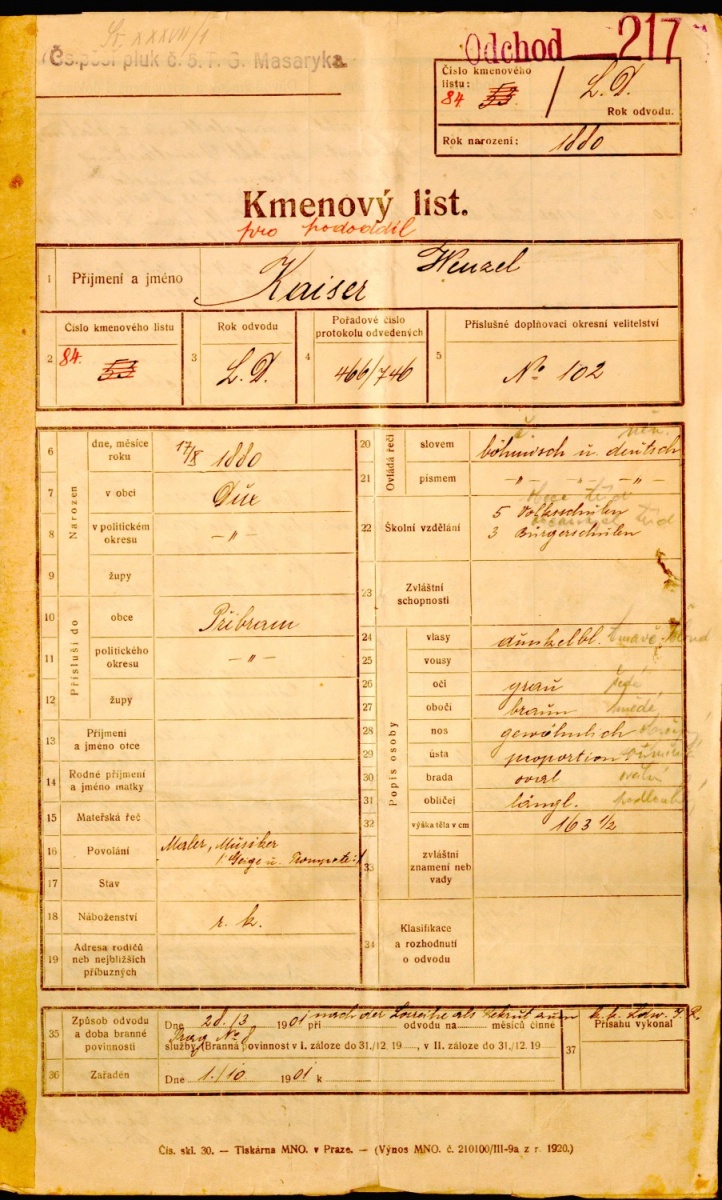 Čs. pěší pluk č. 5. T. G. Masaryka.
Odchod 217
Číslo kmenového listu:
84. 53 / L. D.
Rok odvodu.
Rok narození: 1880
Kmenový list.
pro pododdíl
1 Příjmení a jméno Kaiser Wenzel
2 Číslo kmenového listu 84. 53
3 Rok odvodu L. D.
4 Pořadové číslo protokolu odvedených 466/746
5 Příslušné doplňovací okresní velitelství No 102
Narozen
6 dne, měsíce roku 17/X 1880
7 v obci Dux
8 v politickém okresu -"-
9 župy
Přísluší do
10 obce Přibram
11 politického okresu -"-
12 župy
13 Příjmení a jméno otce
14 Rodné příjmení a jméno matky
15 Mateřská řeč
16 Povolání Maler, Musiker
(Geige u. Trompete)
17 Stav
18 Náboženství r. k.
19 Adresa rodičů neb nejbližších příbuzných
Ovládá řeči
20 slovem böhmisch u. deutsch
č. něm.
21 písmem -"- -"- -"-
22 Školní vzdělání 5 Volksschulen
3 Bürgerschulen
23 Zvláštní schopnosti
Popis osoby
24 vlasy dunkelbl. tmavě blond
25 vousy
26 oči grau šedé
27 obočí braun hnědé
28 nos gewöhnlich
29 ústa proportion.
30 brada oval
31 obličej längl.
32 výška těla v cm 163 1/2
33 zvláštní znamení neb vady
34 Klasifikace a rozhodnutí o odvodu
35 Způsob odvodu a doba branné povinnosti
Dne 20./3 1901 při nach der Losreihe als Rekrut zum k. k. Ldw. I. R.
odvodu na měsíců činné
Prag No 8
služby (Branná povinnost v I. záloze do 31./12. 19 , v II. záloze do 31./12. 19
36 Zařaděn Dne 1./10 1901 k
37 Přísahu vykonal
Čís. skl. 30. — Tiskárna MNO. v Praze. — (Výnos MNO. č. 210100/III-9a z r. 1920.)